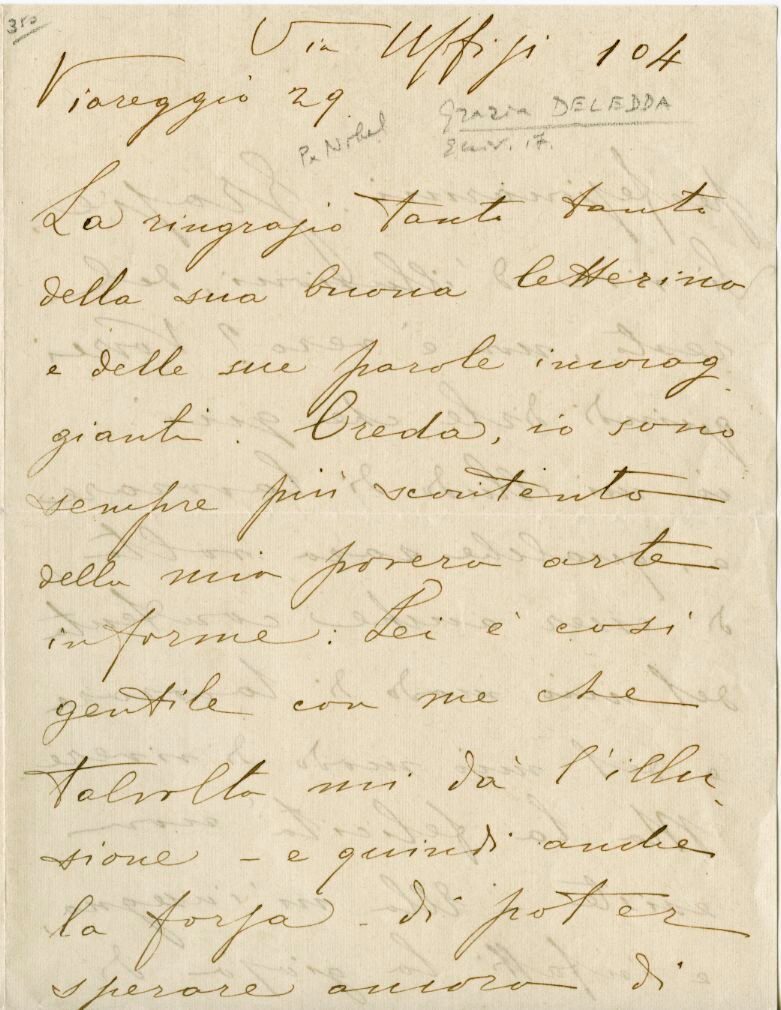 350
Via Uffizi 104
Viareggio 29
Grazia DELEDDA
Pr Nobel
La ringrazio tanto tanto
della sua buona letterina
e delle sue parole incorag
gianti. Creda, io sono
sempre più scontento
della mia povera arte
informe: Lei è così
gentile con me che
talvolta mi dà l'illu-
sione - e quindi anche
la forza - di poter
sperare ancora di